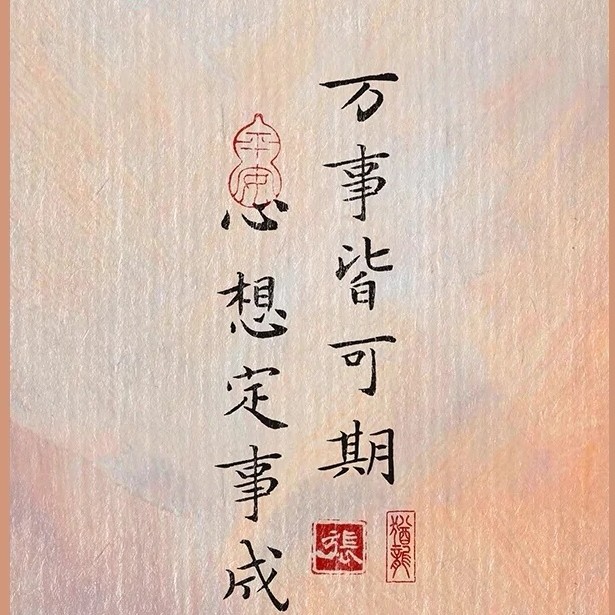 万事皆可期
心想定事成
平安
張